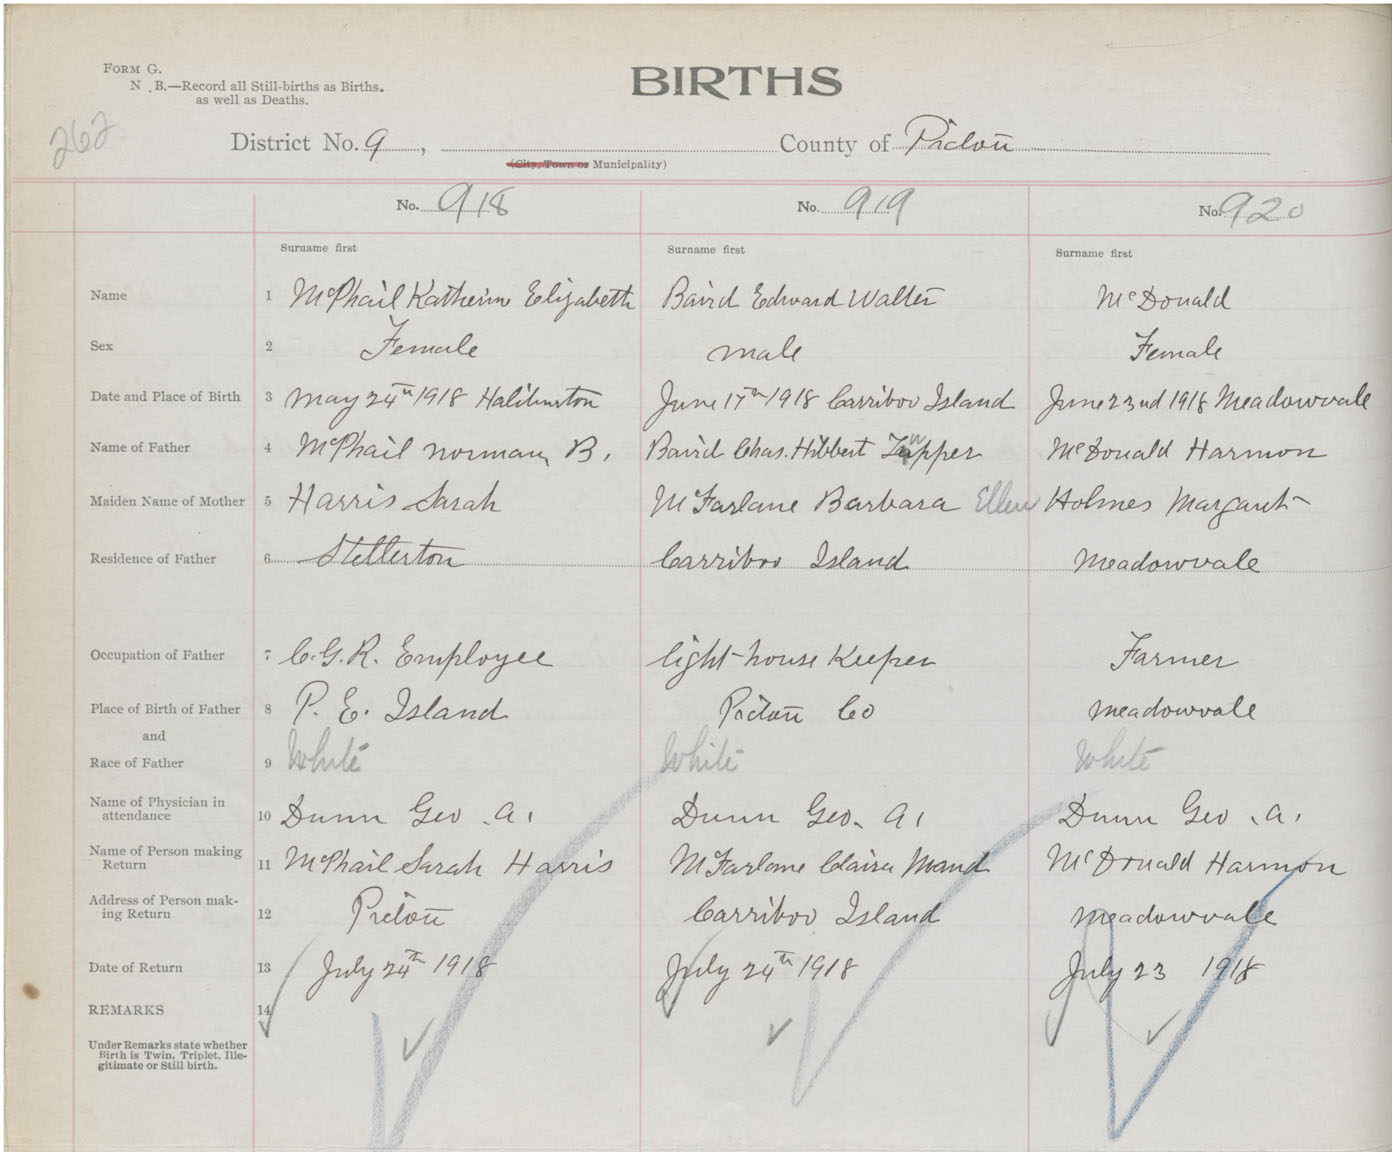 FORM G.
N.B.—Record all Still-births as Births,
as well as Deaths.
BIRTHS
262
District No. 9, (City, Town or Municipality) County of Pictou
No. 918 No. 919 No. 920
Surname first Surname first Surname first
Name 1 McPhail Katherin Elizabeth Baird Edward Walter McDonald
Sex 2 Female male Female
Date and Place of Birth 3 May 24th 1918 Haliburton June 17th 1918 Carriboo Island June 23nd 1918 Meadowvale
Name of Father 4 McPhail Norman B. Baird Chas. Hibbert Tupper McDonald Harmon
Maiden Name of Mother 5 Harris Sarah McFarlane Barbara Ellen Holmes Margaret
Residence of Father 6 Stellerton Carriboo Island Meadowvale
Occupation of Father 7 C.G.R. Employee light-house Keeper Farmer
Place of Birth of Father 8 P. E. Island Pictou Co Meadowvale
and
Race of Father 9 White White White
Name of Physician in
attendance 10 Dunn Geo. A. Dunn Geo. A. Dunn Geo. A.
Name of Person making
Return 11 McPhail Sarah Harris McFarlane Claira Maud McDonald Harmon
Address of Person mak-
ing Return 12 Pictou Carriboo Island Meadowvale
Date of Return 13 July 24th 1918 July 24th 1918 July 23 1918
REMARKS 14
Under Remarks state whether
Birth is Twin, Triplet, Ille-
gitimate or Still birth.